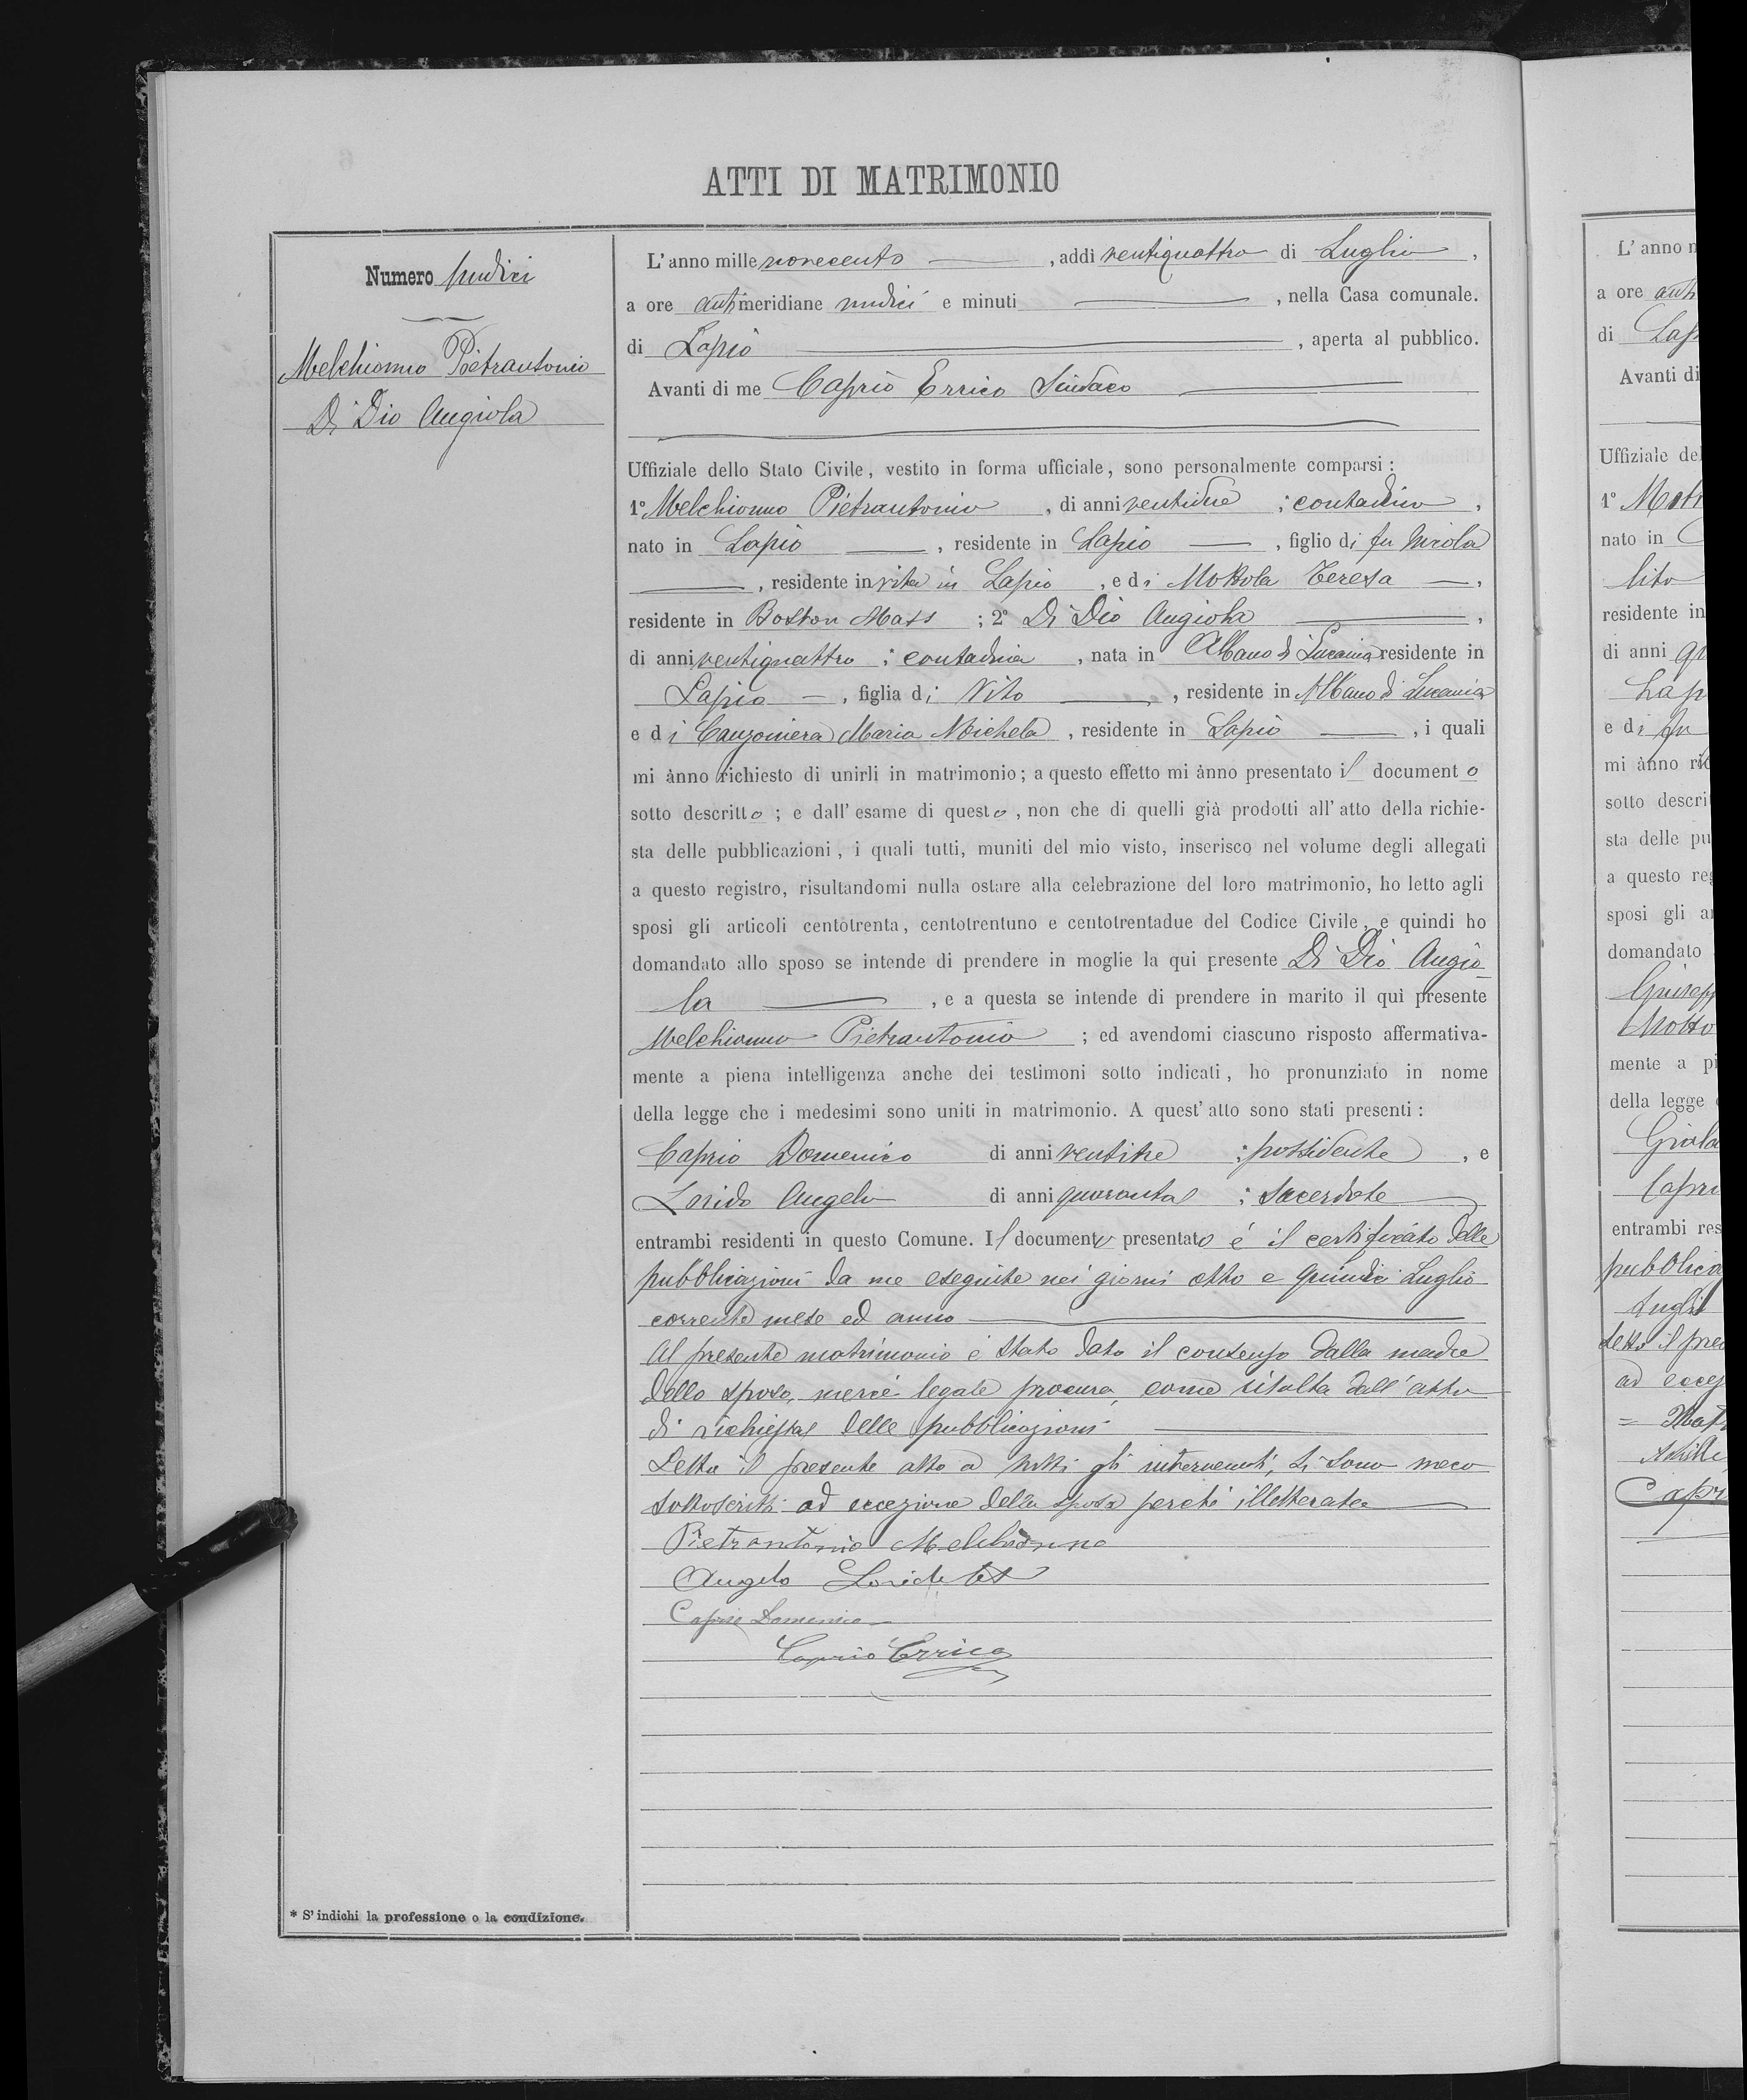 ATTI DI MATRIMONIO
Numero undici
Melchionno Pietrantonio
Di Dio Angiola
L'anno mille novecento, addì ventiquattro di Luglio,
a ore antimeridiane undici e minuti, nella Casa comunale.
di Lapio, aperta al pubblico.
Avanti di me Caprio Errico Sindaco
Uffiziale dello Stato Civile, vestito in forma ufficiale, sono personalmente comparsi:
1º Melchionno Pietrantonio, di anni ventidue; contadino,
nato in Lapio, residente in Lapio, figlio di fu Nicola
, residente in vita in Lapio, e di Mottola Teresa,
residente in Boston Mass; 2º Di Dio Angiola,
di anni ventiquattro; contadina, nata in Albano di Lucania residente in
Lapio, figlia di Vito, residente in Albano di Lucania
e di Canzoniera Maria Michela, residente in Lapio, i quali
mi ànno richiesto di unirli in matrimonio; a questo effetto mi ànno presentato il documento
sotto descritto; e dall'esame di questo, non che di quelli già prodotti all'atto della richie-
sta delle pubblicazioni, i quali tutti, muniti del mio visto, inserisco nel volume degli allegati
a questo registro, risultandomi nulla ostare alla celebrazione del loro matrimonio, ho letto agli
sposi gli articoli centotrenta, centotrentuno e centotrentadue del Codice Civile, e quindi ho
domandato allo sposo se intende di prendere in moglie la qui presente Di Dio Angio
la, e a questa se intende di prendere in marito il quì presente
Melchionno Pietrantonio; ed avendomi ciascuno risposto affermativa-
mente a piena intelligenza anche dei testimoni sotto indicati, ho pronunziato in nome
della legge che i medesimi sono uniti in matrimonio. A quest'atto sono stati presenti:
Caprio Domenico di anni ventitre; possidente, e
Lorido Angelo di anni quaranta; sacerdote
entrambi residenti in questo Comune. Il documento presentato é il certificato delle
pubblicazioni da me eseguite nei giorni otto e quindici Luglio
corrente mese ed anno
Al presente matrimonio é stato dato il consenso dalla madre
dello sposo, mercé legale procura, come risulta dall'atto
di richiesta delle pubblicazioni
Letto il presente atto a tutti gli intervenuti, si sono meco
sottoscritti ad eccezione della sposa perché illetterata
Pietrantonio Melchionno
Angelo Lorido
Caprio Domenico
Caprio Errico
* S'indichi la professione o la condizione.
L'anno m
a ore anti
di Lap
Avanti di
Uffiziale del
1º
nato in
Vito
residente in
di anni
Lap
e di fu
mi ànno ric
sotto descrit
sta delle pu
a questo reg
sposi gli ar
domandato
Giusepp
mente a pi
della legge
Capri
entrambi res
pubblica
Luglio
Letto il pres
ad eccez
Capr